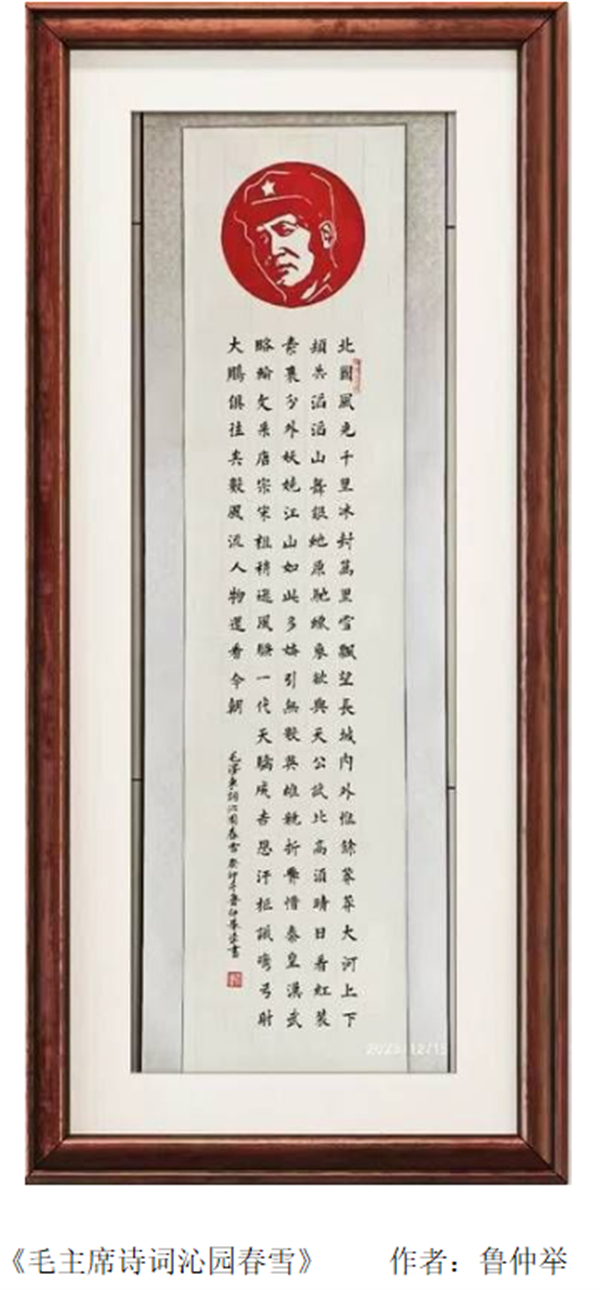 北國風光千里冰封萬里雪飄望長城內外惟餘莽莽大河上下
頓失滔滔山舞銀蛇原馳蠟象欲與天公試比高須晴日看紅裝
素裹分外妖嬈江山如此多嬌引無數英雄競折腰惜秦皇漢武
略輸文采唐宗宋祖稍遜風騷一代天驕成吉思汗祇識彎弓射
大鵰俱往矣數風流人物還看今朝
毛澤東詞沁園春雪癸卯年魯仲舉書
2023/12/15
《毛主席诗词沁园春雪》 作者：鲁仲举